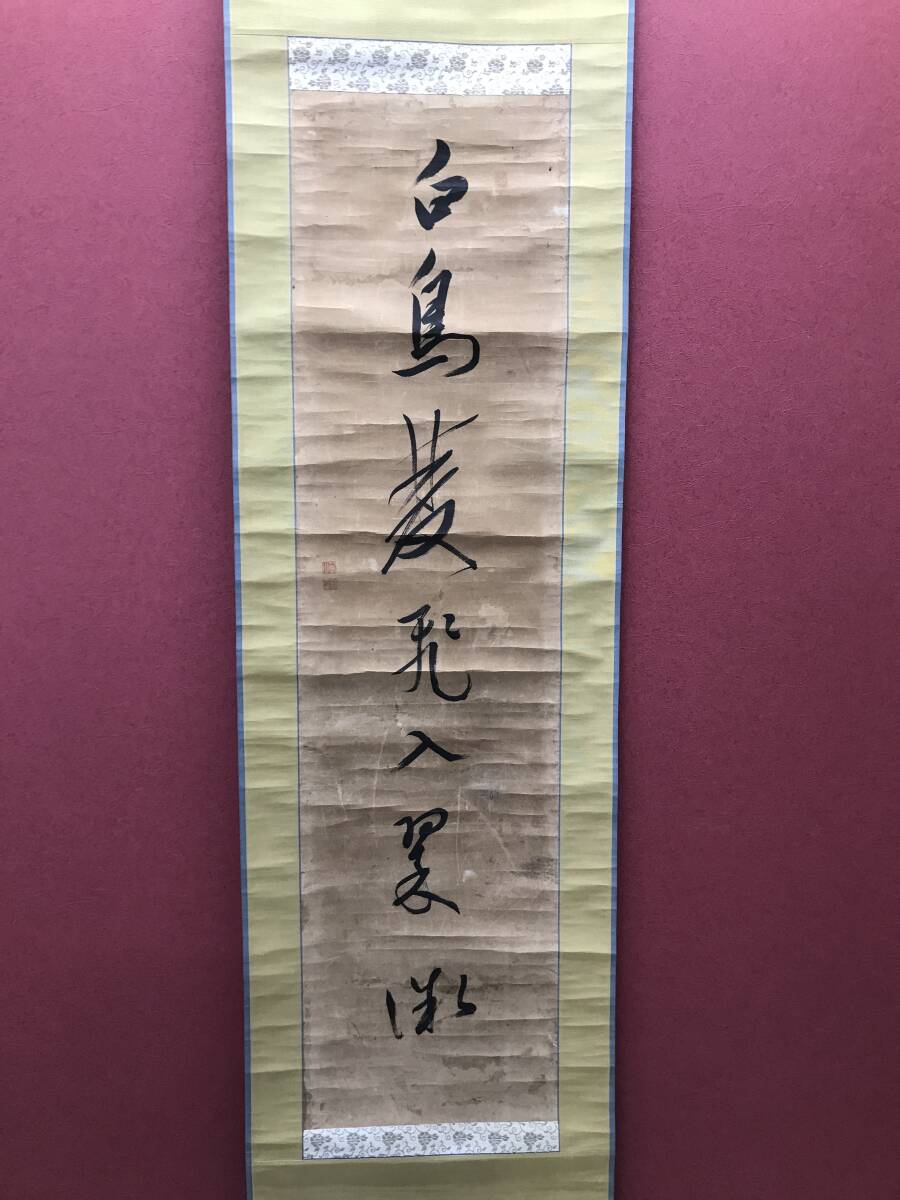 白鳥雙飛入翠微